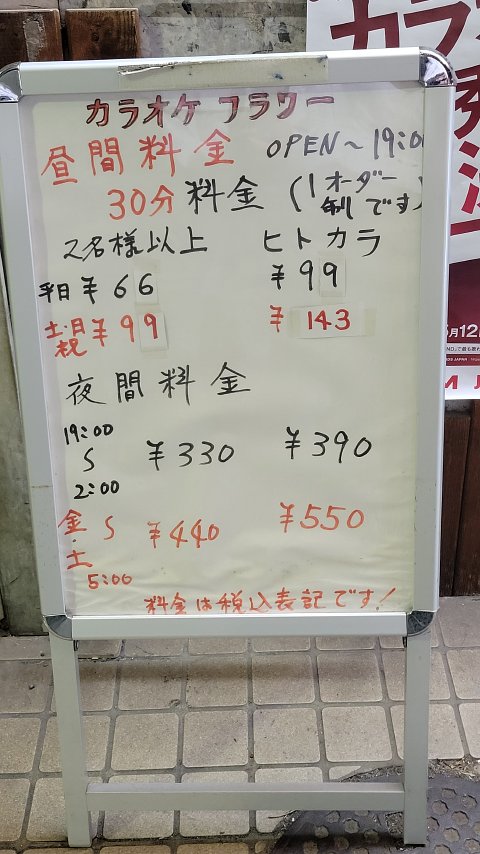 カラオケ フラワー
昼間料金 OPEN～19:00
30分 料金 (1オーダー制です)
2名様以上 ヒトカラ
平日 ¥66 ¥99
土・日祝 ¥99 ¥143
夜間料金
19:00
S ¥330 ¥390
2:00
金・土 S ¥440 ¥550
5:00
料金は税込表記です!
月12